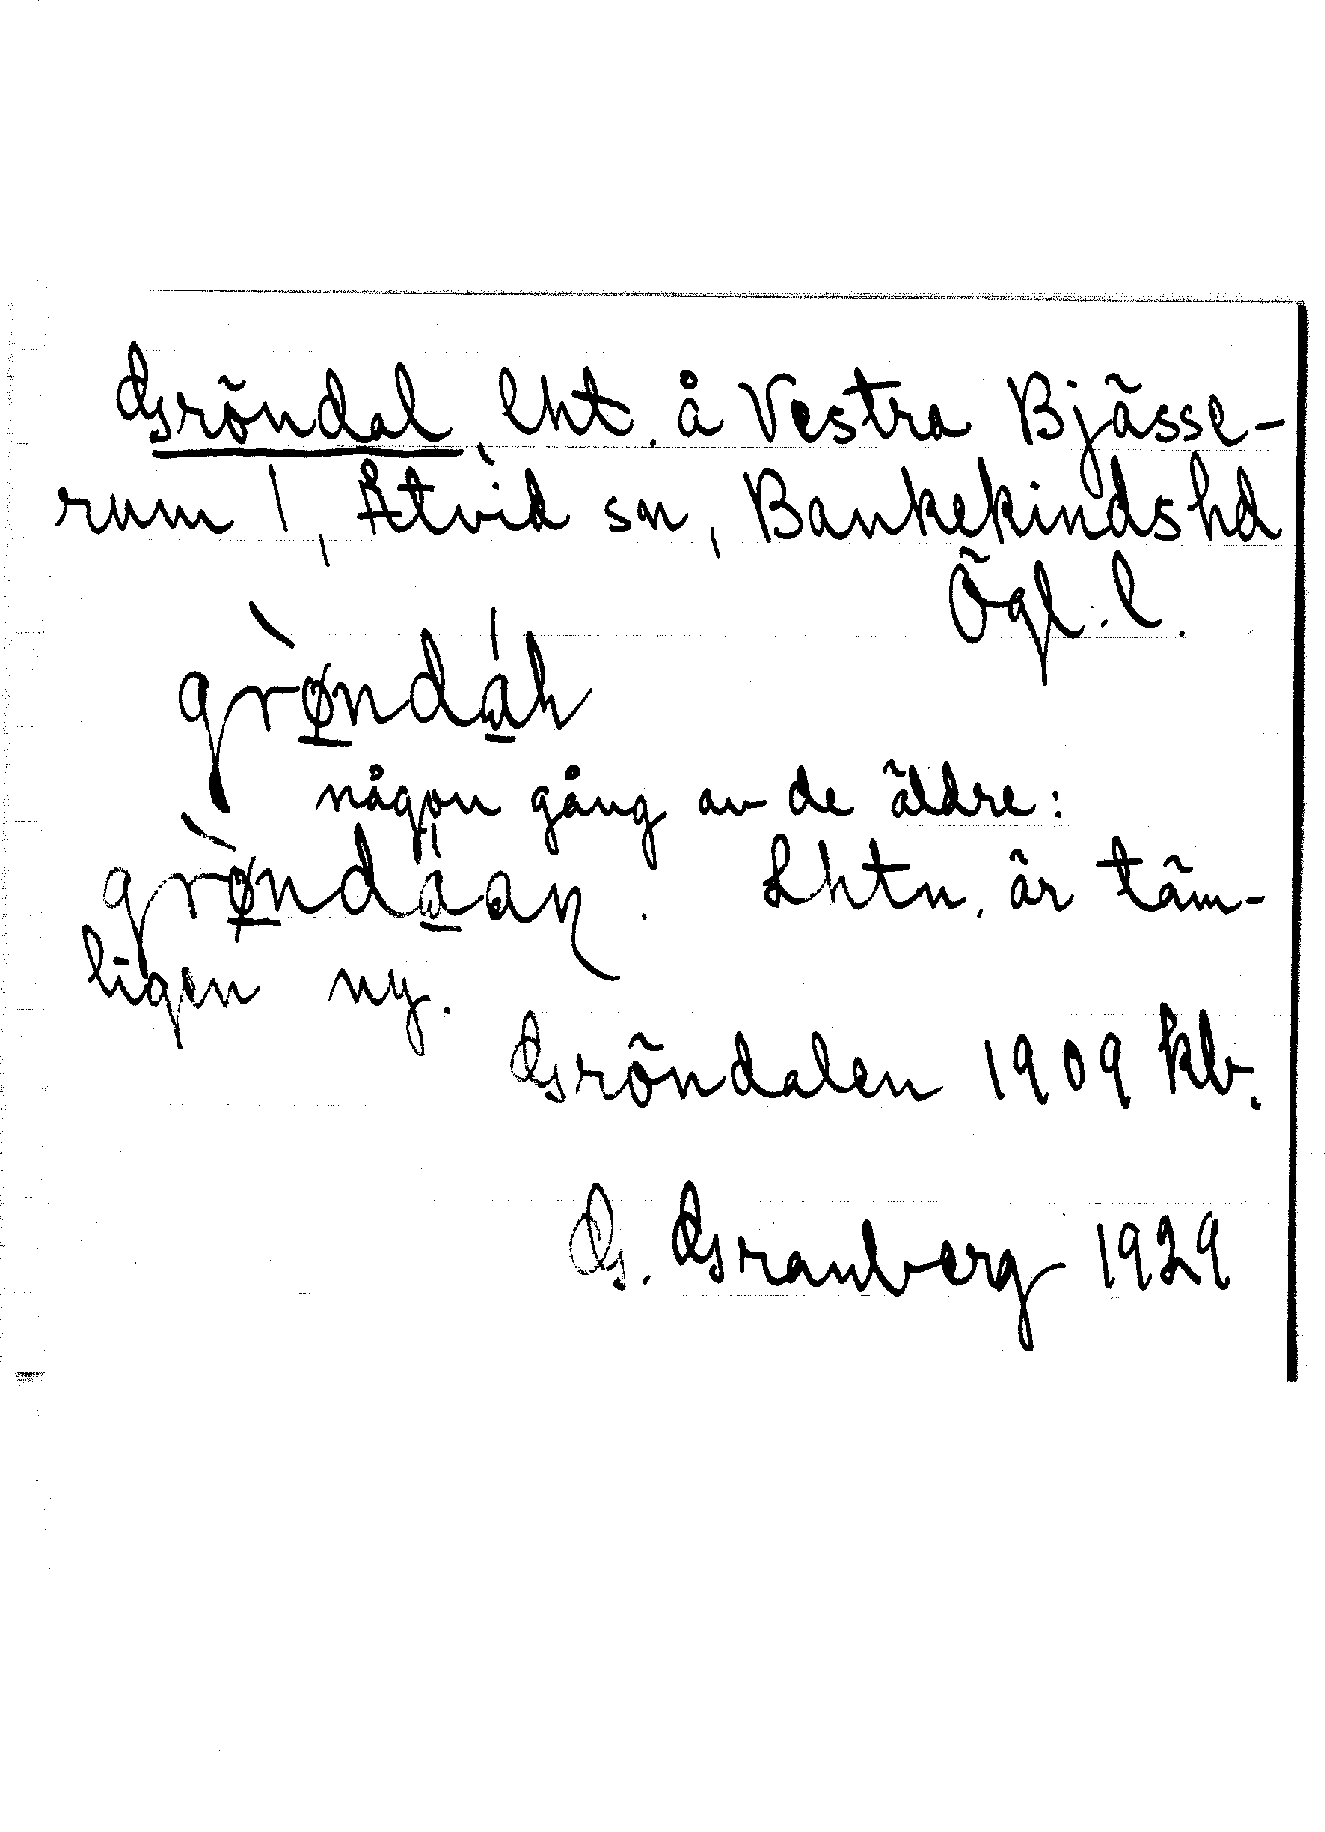 Gröndal, lht. å Vestra Bjässe-
rum 1, Åtvid sn, Bankekinds hd
Ögl. l.
grø̀ndáh
någon gång av de äldre:
grø̀ndáan. Lhtn. är täm-
ligen ny.
Gröndalen 1909 kb.
G. Granberg 1929